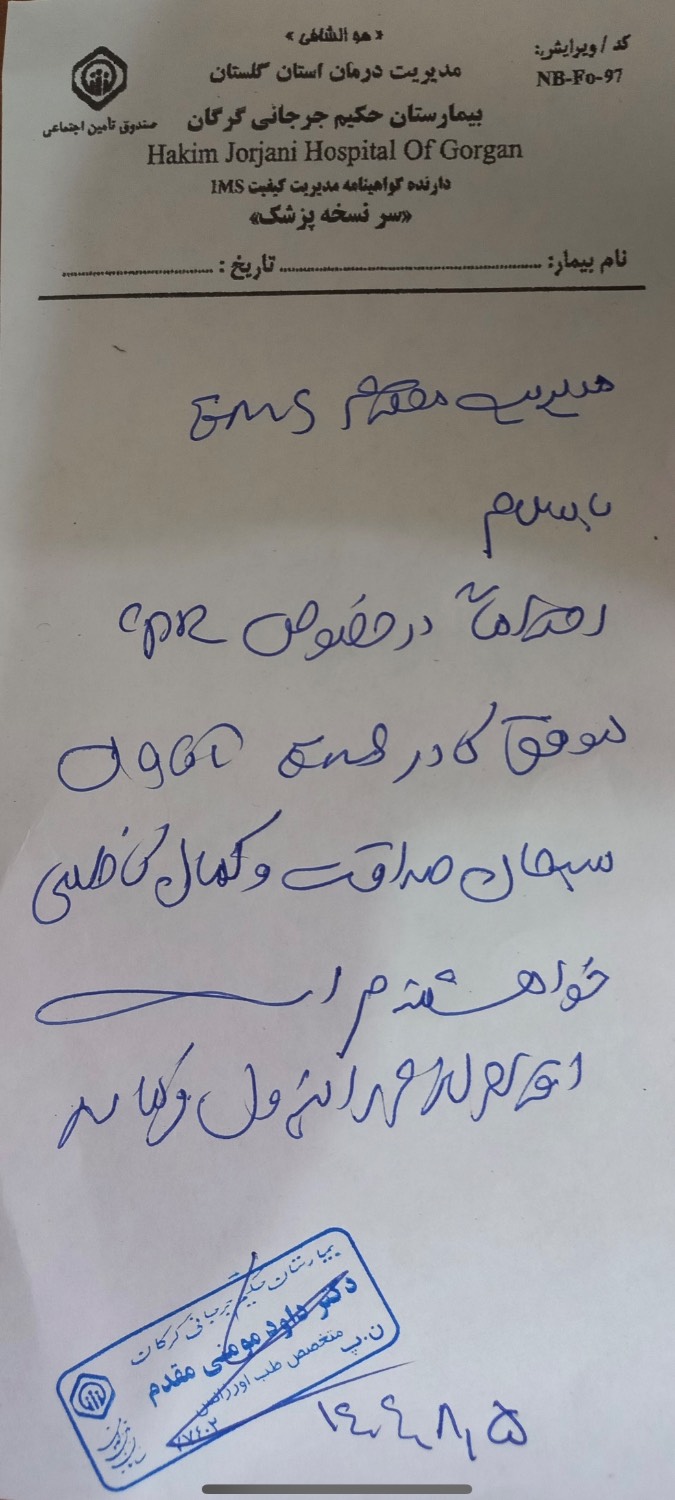 « هو الشافی »
کد / ویرایش:
NB-Fo-97
مدیریت درمان استان گلستان
صندوق تأمین اجتماعی
بیمارستان حکیم جرجانی گرگان
Hakim Jorjani Hospital Of Gorgan
دارنده گواهینامه مدیریت کیفیت IMS
«سر نسخه پزشک»
نام بیمار: تاریخ :
مدیریت محترم EMS
با سلام
احتراماً در خصوص CPR
موفق کادر EMS آقای
سبحان صداقت و کمال کاظمی
خواهشمندم
را مبذول فرمایید
بیمارستان حکیم جرجانی گرگان
دکتر داود مومنی مقدم
متخصص طب اورژانس
ن.پ
۱۴۰۴،۸،۵